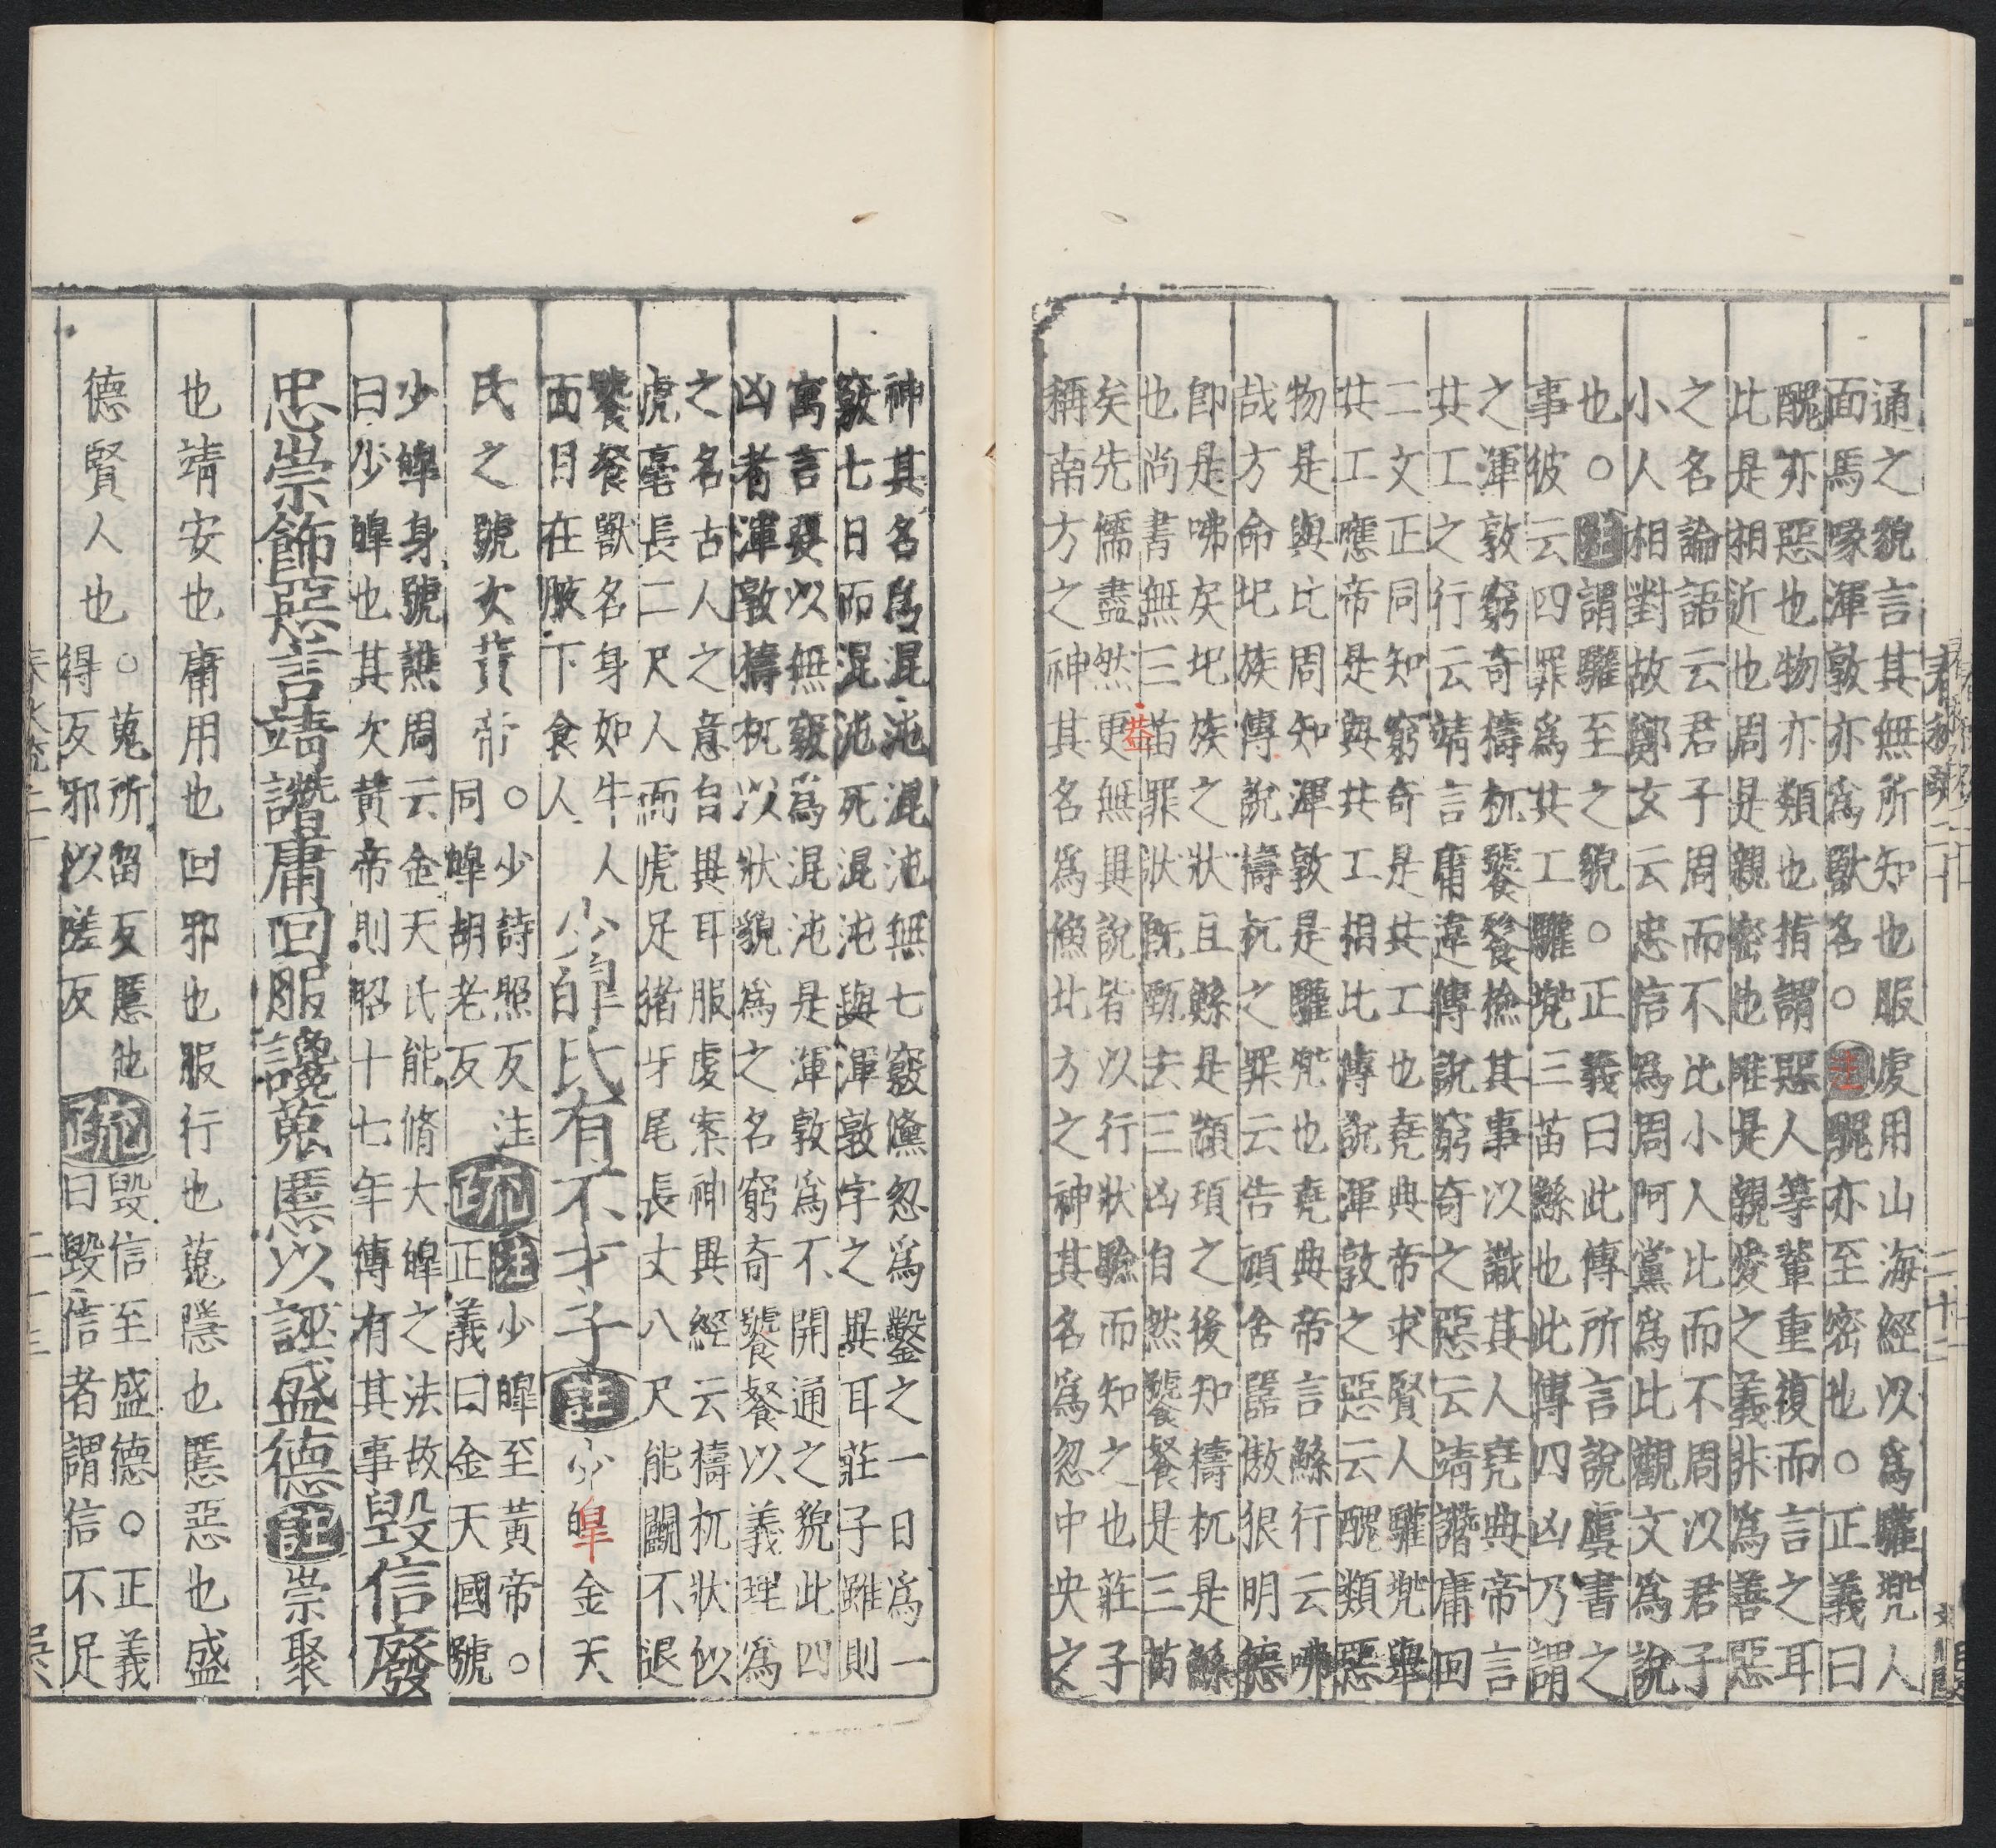 通之貌言其無所知也服虔用山海經以爲驩兜人
面馬喙渾敦亦爲獸名○注醜亦至密也○正義曰
醜亦惡也物亦類也指謂惡人等輩重複而言之耳
比是相近也周是親密也唯是親愛之義非爲善惡
之名論語云君子周而不比小人比而不周以君子
小人相對故鄭玄云忠信爲周阿黨爲比觀文爲說
也○註謂驩至之貌○正義曰此傳所言說虞書之
事彼云四罪爲共工驩兜三苗鯀也此傳四凶乃謂
之渾敦窮奇檮杌饕餮撿其事以識其人堯典帝言
共工之行云靖言庸違傳說窮奇之惡云靖譖庸回
二文正同知窮奇是共工也堯典帝求賢人驩兜舉
共工應帝是與共工相比傳說渾敦之惡云醜類惡
物是與比周知渾敦是驩兜也堯典帝言鯀行云咈
哉方命圮族傳說檮杌之罪云告頑舍嚚傲狠明德
卽是咈戾圮族之狀且鯀是顓頊之後知檮杌是鯀
也尚書無三苗罪狀既甄去三凶自然饕餮是三苗
矣先儒盡然更無異說皆以行狀驗而知之也莊子
稱南方之神其名爲儵北方之神其名爲忽中央之
神其名爲混沌混沌無七竅儵忽爲鑿之一日爲一
竅七日而混沌死混沌與渾敦字之異耳莊子雖則
寓言要以無竅爲混沌是渾敦爲不開通之貌此四
凶者渾敦檮杌以狀貌爲之名窮奇饕餮以義理爲
之名古人之意自異耳服虔案神異經云檮杌狀似
虎毫長二尺人面虎足猪牙尾長丈八尺能鬭不退
饕餮獸名身如牛人
面目在腋下食人
少皞氏有不才子註少皞金天
氏之號次黃帝
○少詩照反注
同皞胡老反
疏註少皞至黃帝○
正義曰金天國號
少皞身號譙周云金天氏能脩大皞之法故
曰少皞也其次黃帝則昭十七年傳有其事
毀信廢
忠崇飾惡言靖譖庸回服讒蒐慝以誣盛德註崇聚
也靖安也庸用也回邪也服行也蒐隱也慝惡也盛
德賢人也
○蒐所留反慝他
得反邪以嗟反
疏毀信至盛德○正義
曰毀信者謂信不足